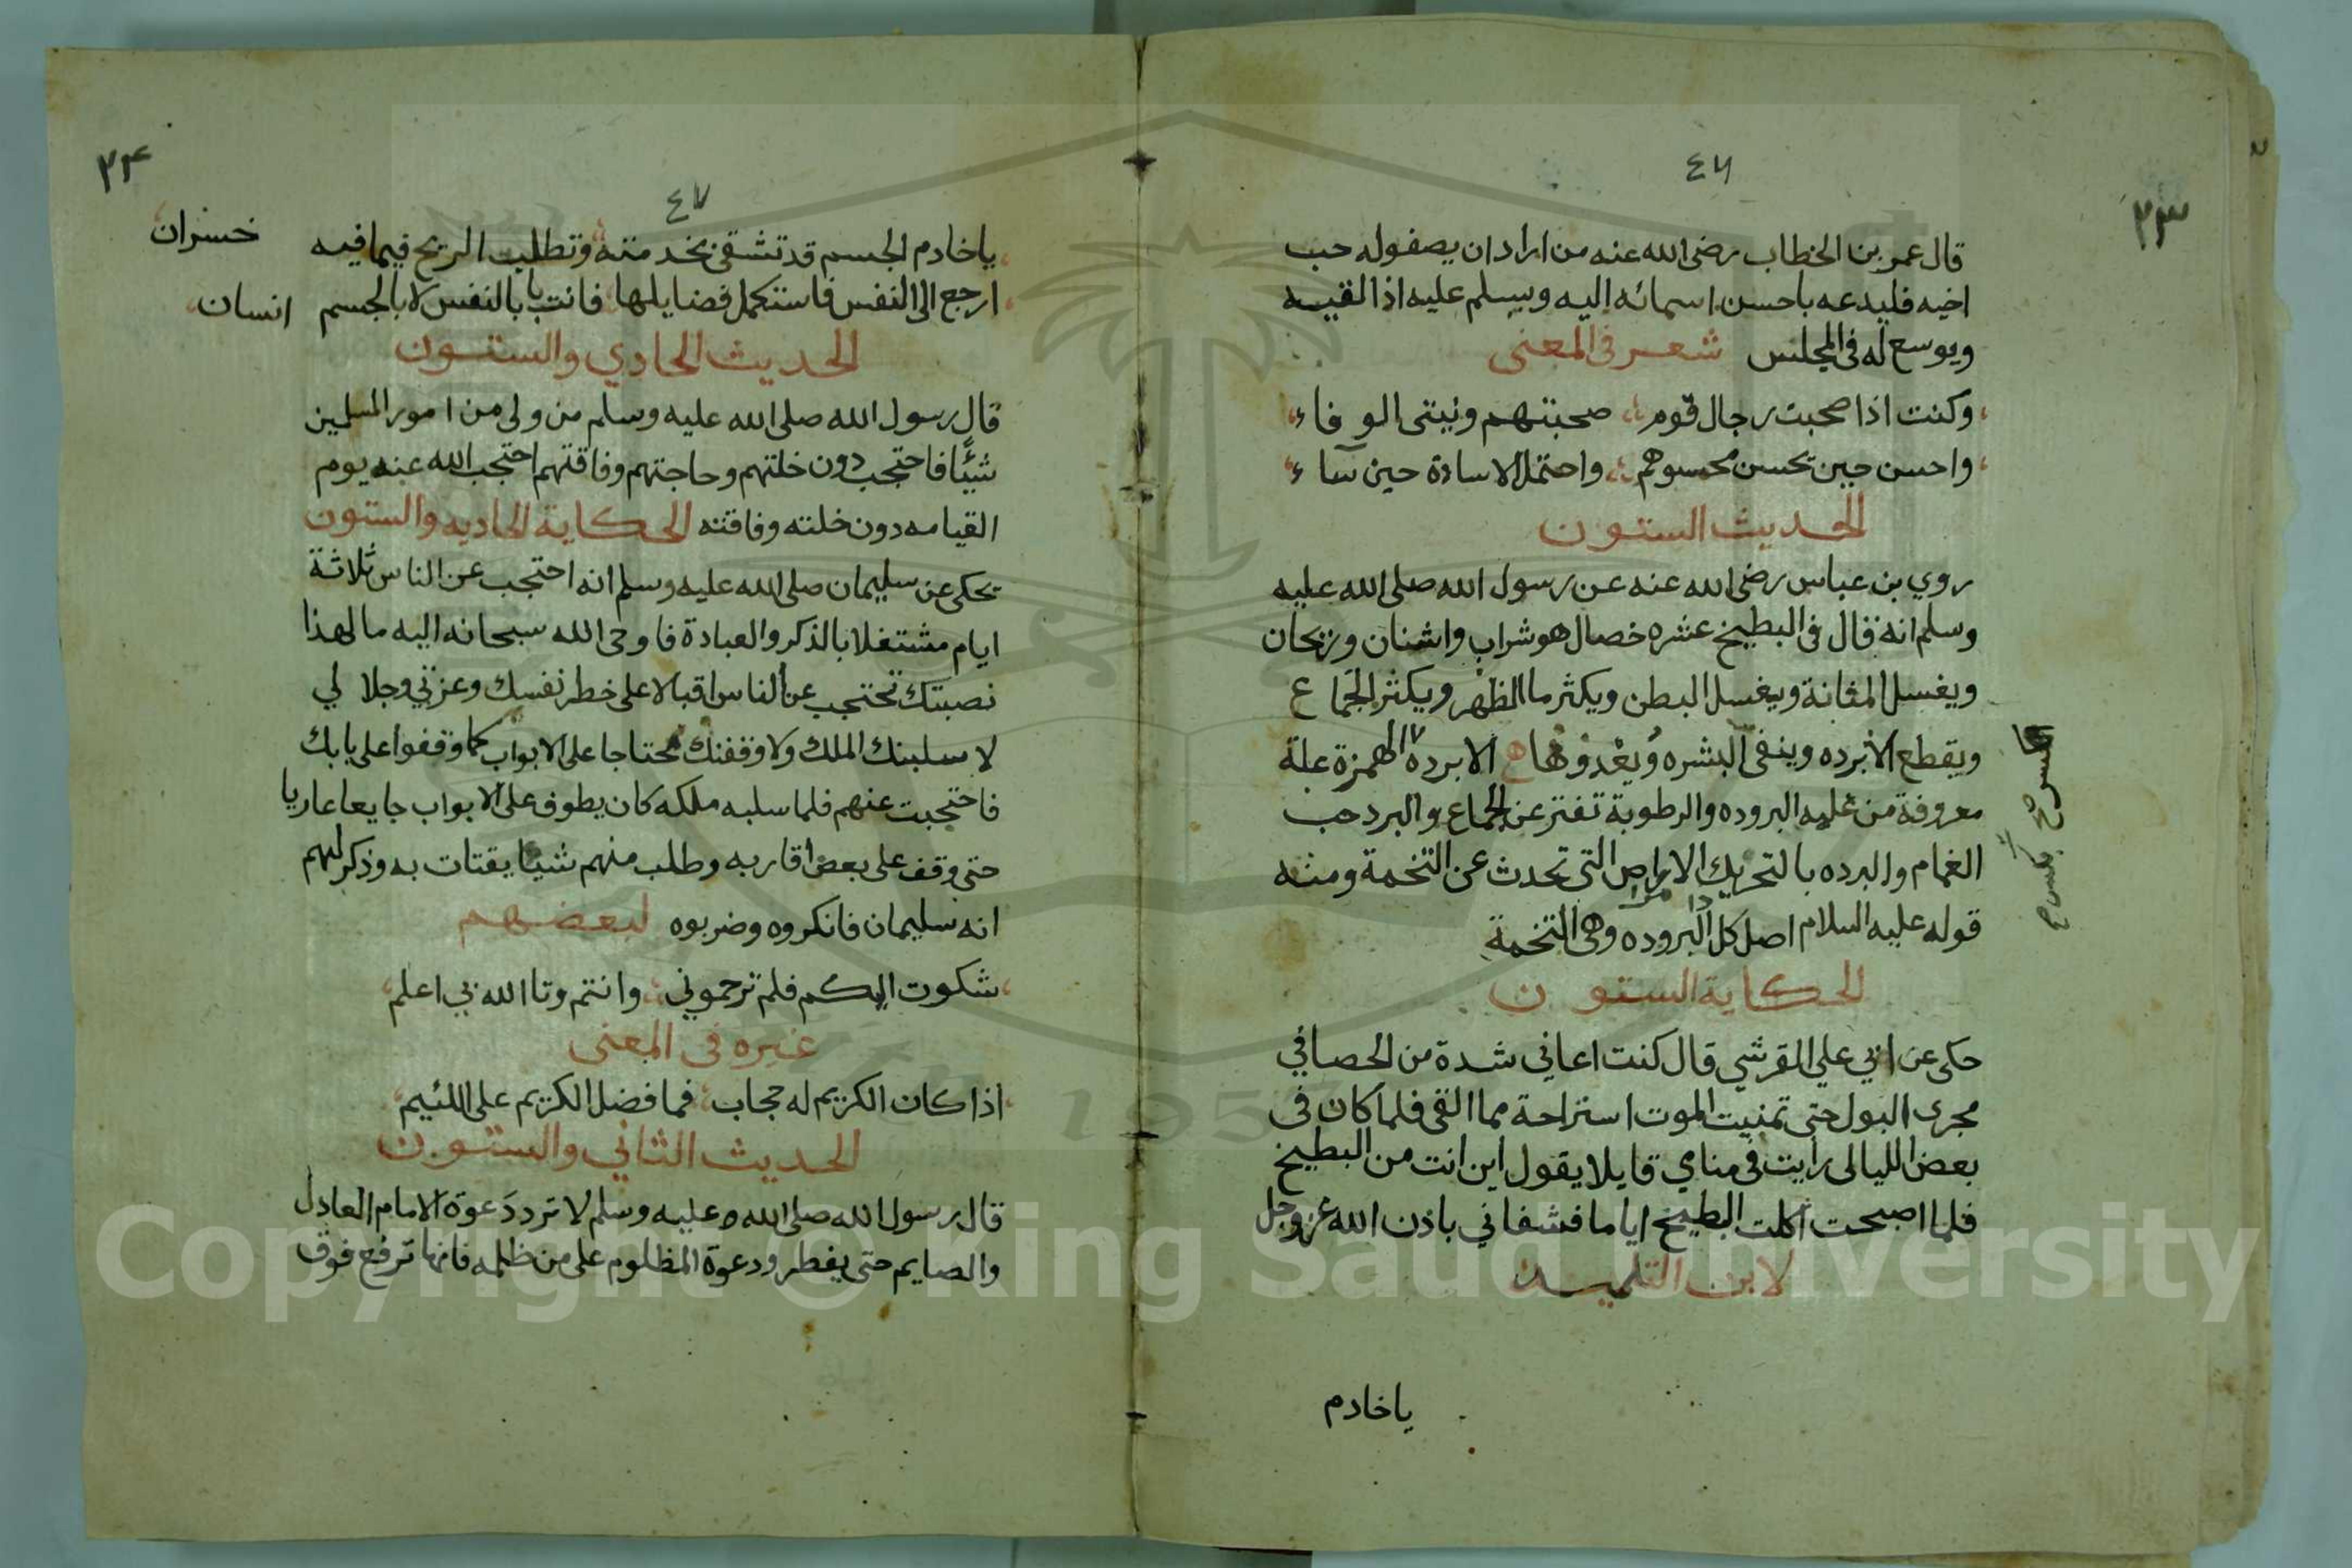 ٤٦
٢٣
قال عمر بن الخطاب رضى الله عنه من اراد ان يصفوله حب
اخيه فليدعه باحسن اسمائه اليه ويسلم عليه اذا لقيه
ويوسع له فى المجلس شعر فى المعنى
وكنت اذا صحبت رجال قوم صحبتهم ونيتى الوفاء
واحسن حين يحسن محسنوهم واحتمل الاساءة حين ساء
الحديث الستون
روي بن عباس رضى الله عنه عن رسول الله صلى الله عليه
وسلم انه قال فى البطيخ عشره خصال هو شراب واشنان وريحان
ويغسل المثانة ويغسل البطن ويكثر ماالظهر ويكثر الجماع
ويقطع الابرده وينقى البشره الابردة الهمزة علة
معروفة من غلبه البروده والرطوبة تفتر عن الجماع والبرد حب
الغمام والبرده بالتحريك التى تحدث عن التخمة ومنه
قوله عليه السلام اصل كل البروده وهى التخمة
الحكاية الستون
حكى عن ابي علي القرشي قال كنت اعاني شدة من الحصا في
مجرى البول حتى تمنيت الموت استراحة مما القى فلما كان فى
بعض الليالى رايت فى منامي قايلا يقول اين انت من البطيخ
فلما اصبحت اكلت البطيخ اياما فشفاني باذن الله عز وجل
لابن التلميد
ياخادم
٤٧
٢٤
ياخادم الجسم قد تشقى بخدمته وتطلب الربح فيما فيه خسران
ارجع الى النفس فاستكمل فضايلها فانت بالنفس لا بالجسم انسان
الحديث الحادي والستون
قال رسول الله صلى الله عليه وسلم من ولى من امور المسلمين
شيئا فاحتجب دون خلتهم وحاجتهم وفاقتهم احتجب الله عنه يوم
القيامه دون خلته وفاقته الحكاية الحاديه والستون
يحكى عن سليمان صلى الله عليه وسلم انه احتجب عن الناس ثلاثة
ايام مشتغلا بالذكر والعبادة فاوحى الله سبحانه اليه ما لهذا
نصبتك تحتجب عن الناس اقبالا على خطر نفسك وعزتي وجلالي
لاسلبنك الملك ولاوقفنك محتاجا على الابواب كما وقفوا على بابك
فاحتجبت عنهم فلما سلبه ملكه كان يطوف على الابواب جايعا عاريا
حتى وقف على بعض اقاربه وطلب منهم شيا يقتات به وذكر لهم
انه سليمان فانكروه وضربوه لبعضهم
شكوت اليكم فلم ترحموني وانتم وتاالله بي اعلم
غيره فى المعنى
اذا كان الكريم له حجاب فما فضل الكريم على اللئيم
الحديث الثاني والستون
قال رسول الله صلى الله وعليه وسلم لا ترد دعوة الامام العادل
والصايم حتى يفطر ودعوة المظلوم على من ظلمه فانها ترفع فوق
Copyright © King Saud University